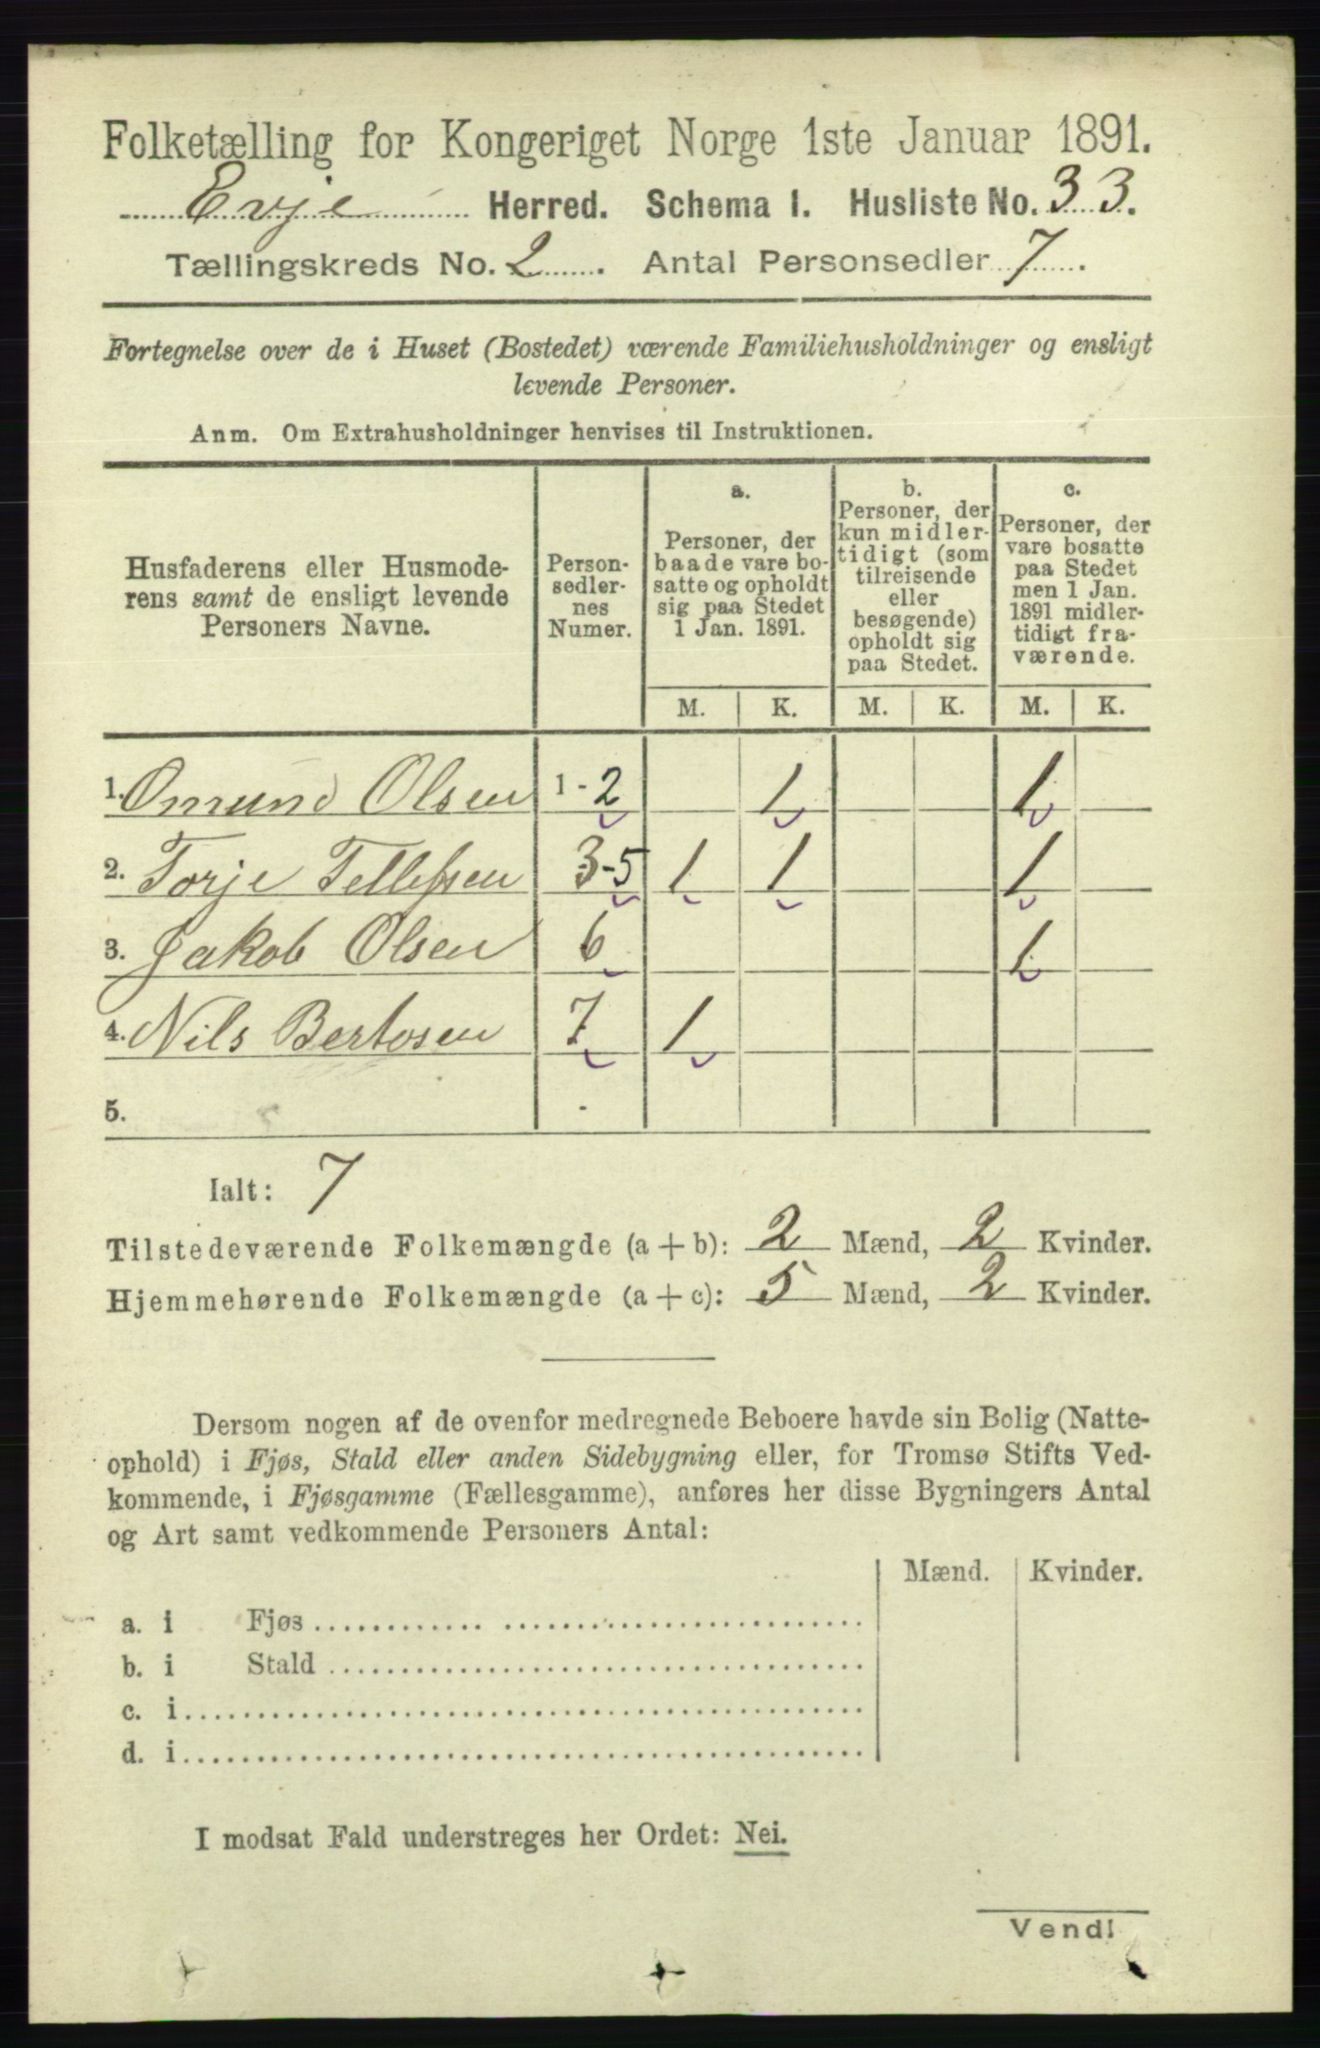 Folketælling for Kongeriget Norge 1ste Januar 1891.
Evje Herred. Schema I. Husliste No. 33.
Tællingskreds No. 2. Antal Personsedler 7.
Fortegnelse over de i Huset (Bostedet) værende Familiehusholdninger og ensligt
levende Personer.
Anm. Om Extrahusholdninger henvises til Instruktionen.
Husfaderens eller Husmode-
rens samt de ensligt levende
Personers Navne.
Person-
sedler-
nes
Numer.
a.
Personer, der
baade vare bo-
satte og opholdt
sig paa Stedet
1 Jan. 1891.
b.
Personer, der
kun midler-
tidigt (som
tilreisende
eller
besøgende)
opholdt sig
paa Stedet.
c.
Personer, der
vare bosatte
paa Stedet
men 1 Jan.
1891 midler-
tidigt fra-
værende.
M. K. M. K. M. K.
1. Omund Olsen 1 - 2 1 1
2. Torje Tellefsen 3-5 1 1 1
3. Jakob Olsen 6 1
4. Nils Bertosen 7 1
5.
Ialt: 7
Tilstedeværende Folkemængde (a + b): 2 Mænd, 2 Kvinder.
Hjemmehørende Folkemængde (a + c): 5 Mænd, 2 Kvinder.
Dersom nogen af de ovenfor medregnede Beboere havde sin Bolig (Natte-
ophold) i Fjøs, Stald eller anden Sidebygning eller, for Tromsø Stifts Ved-
kommende, i Fjøsgamme (Fællesgamme), anføres her disse Bygningers Antal
og Art samt vedkommende Personers Antal:
Mænd. Kvinder.
a. i Fjøs
b. i Stald
c. i
d. i
I modsat Fald understreges her Ordet: Nei.
Vend!